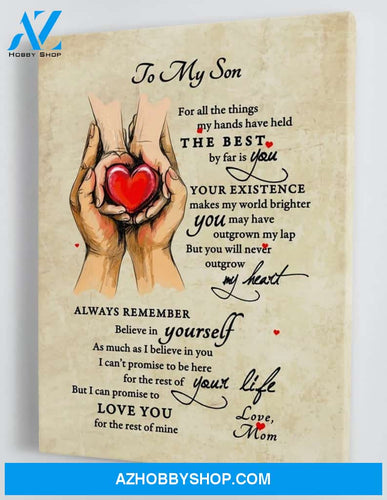 AZ
HOBBY SHOP
To My Son
For all the things
my hands have held
THE BEST
by far is you
YOUR EXISTENCE
makes my world brighter
you may have
outgrown my lap
But you will never
outgrow
my heart
ALWAYS REMEMBER
Believe in yourself
As much as I believe in you
I can't promise to be here
for the rest of your life
But I can promise to
LOVE YOU
for the rest of mine
Love,
Mom
AZHOBBYSHOP.COM